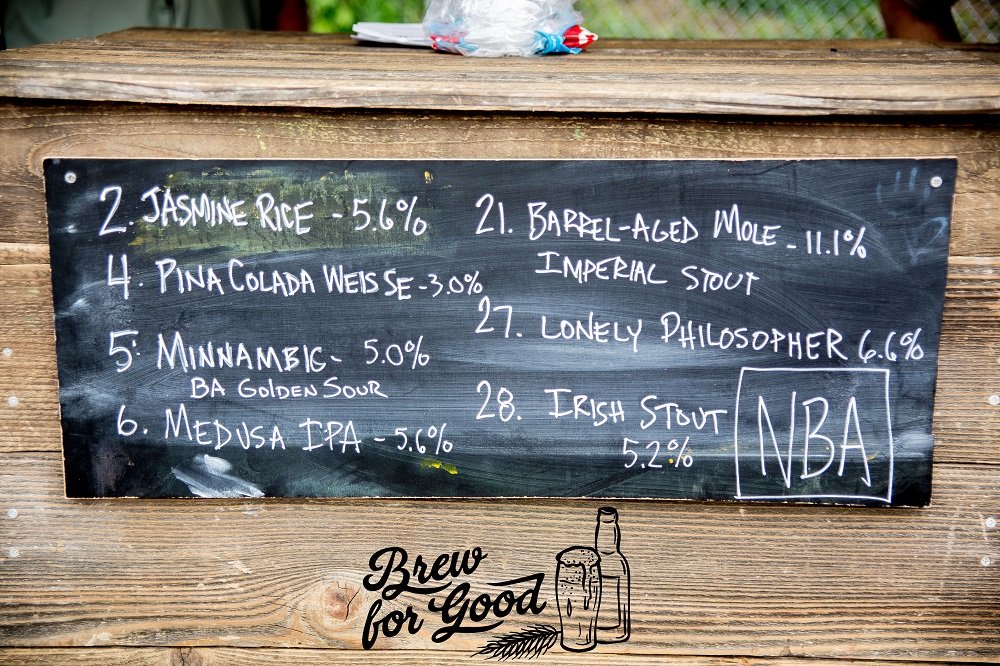 2. JASMINE RICE - 5.6%
4. PINA COLADA WEISSE - 3.0%
5. MINNAMBIC - 5.0%
BA GOLDEN SOUR
6. MEDUSA IPA - 5.6%
21. BARREL-AGED MOLE - 11.1%
IMPERIAL STOUT
27. LONELY PHILOSOPHER 6.6%
28. IRISH STOUT
5.2%
NBA
Brew
for Good